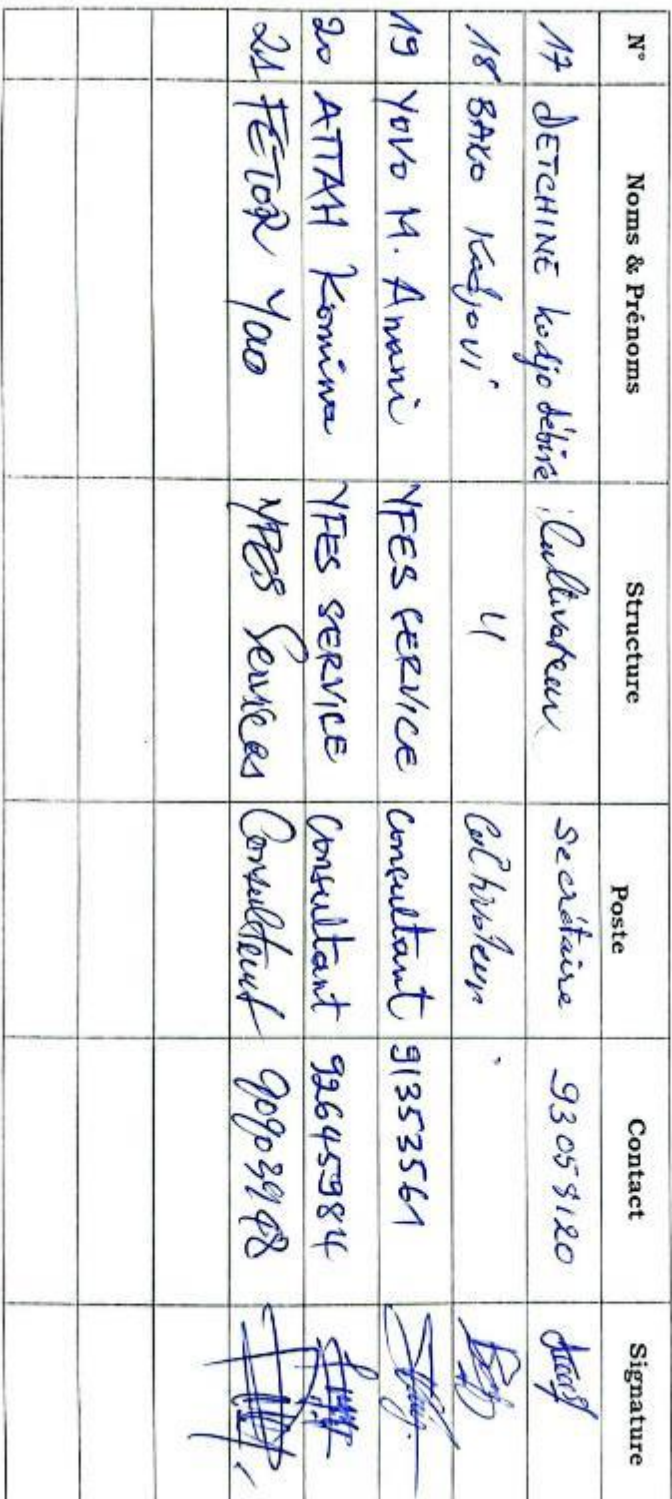 N° Noms & Prénoms Structure Poste Contact Signature
17 DETCHINE kodjo débire Cultivateur Secrétaire 93058120
18 BAKO Kodjovi 〃 Cultivateur
19 YOVO M. Anani YFES SERVICE Consultant 91353561
20 ATTAH Komina YFES SERVICE Consultant 92645984
21 FETOR Yao YFES Services Consultant